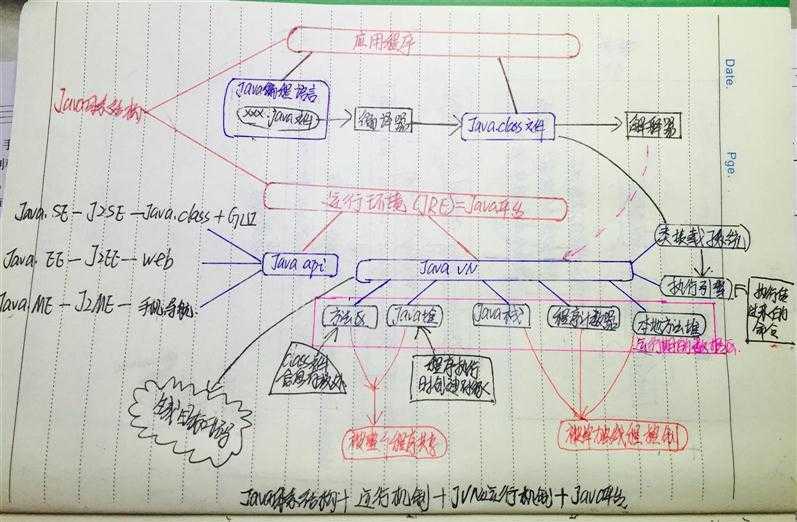 应用程序
Date.
Java体系结构
Java编程语言
xxx.java文件
编译器
Java.class文件
解释器
Pge.
运行环境(JRE)=Java平台
Java.SE — J2SE — Java.class + GUI
Java.EE — J2EE — web
Java.ME — J2ME — 手机导航.
Java api
Java VN
类装载子系统
执行引擎
执行
命令
方法区
Java堆
Java栈
程序计数器
本地方法堆
运行时的数据区.
Class文件
信息存放处
程序执行
时创建对象
生成目标代码
被整个程序共享
被单独线程控制
Java体系结构 + 运行机制 + JVN运行机制 + Java平台